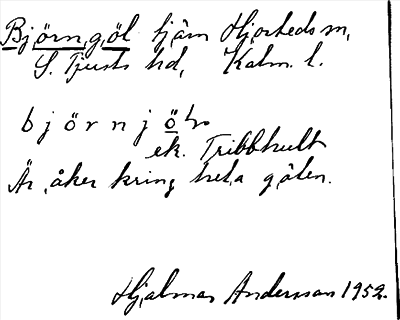 Björngöl tjärn Hjorteds sn,
S. Tjusts hd, Kalm. l.
björnjö̱l
ek. Tribbhult
Är åker kring hela gölen.
Hjalmar Andersson 1952.